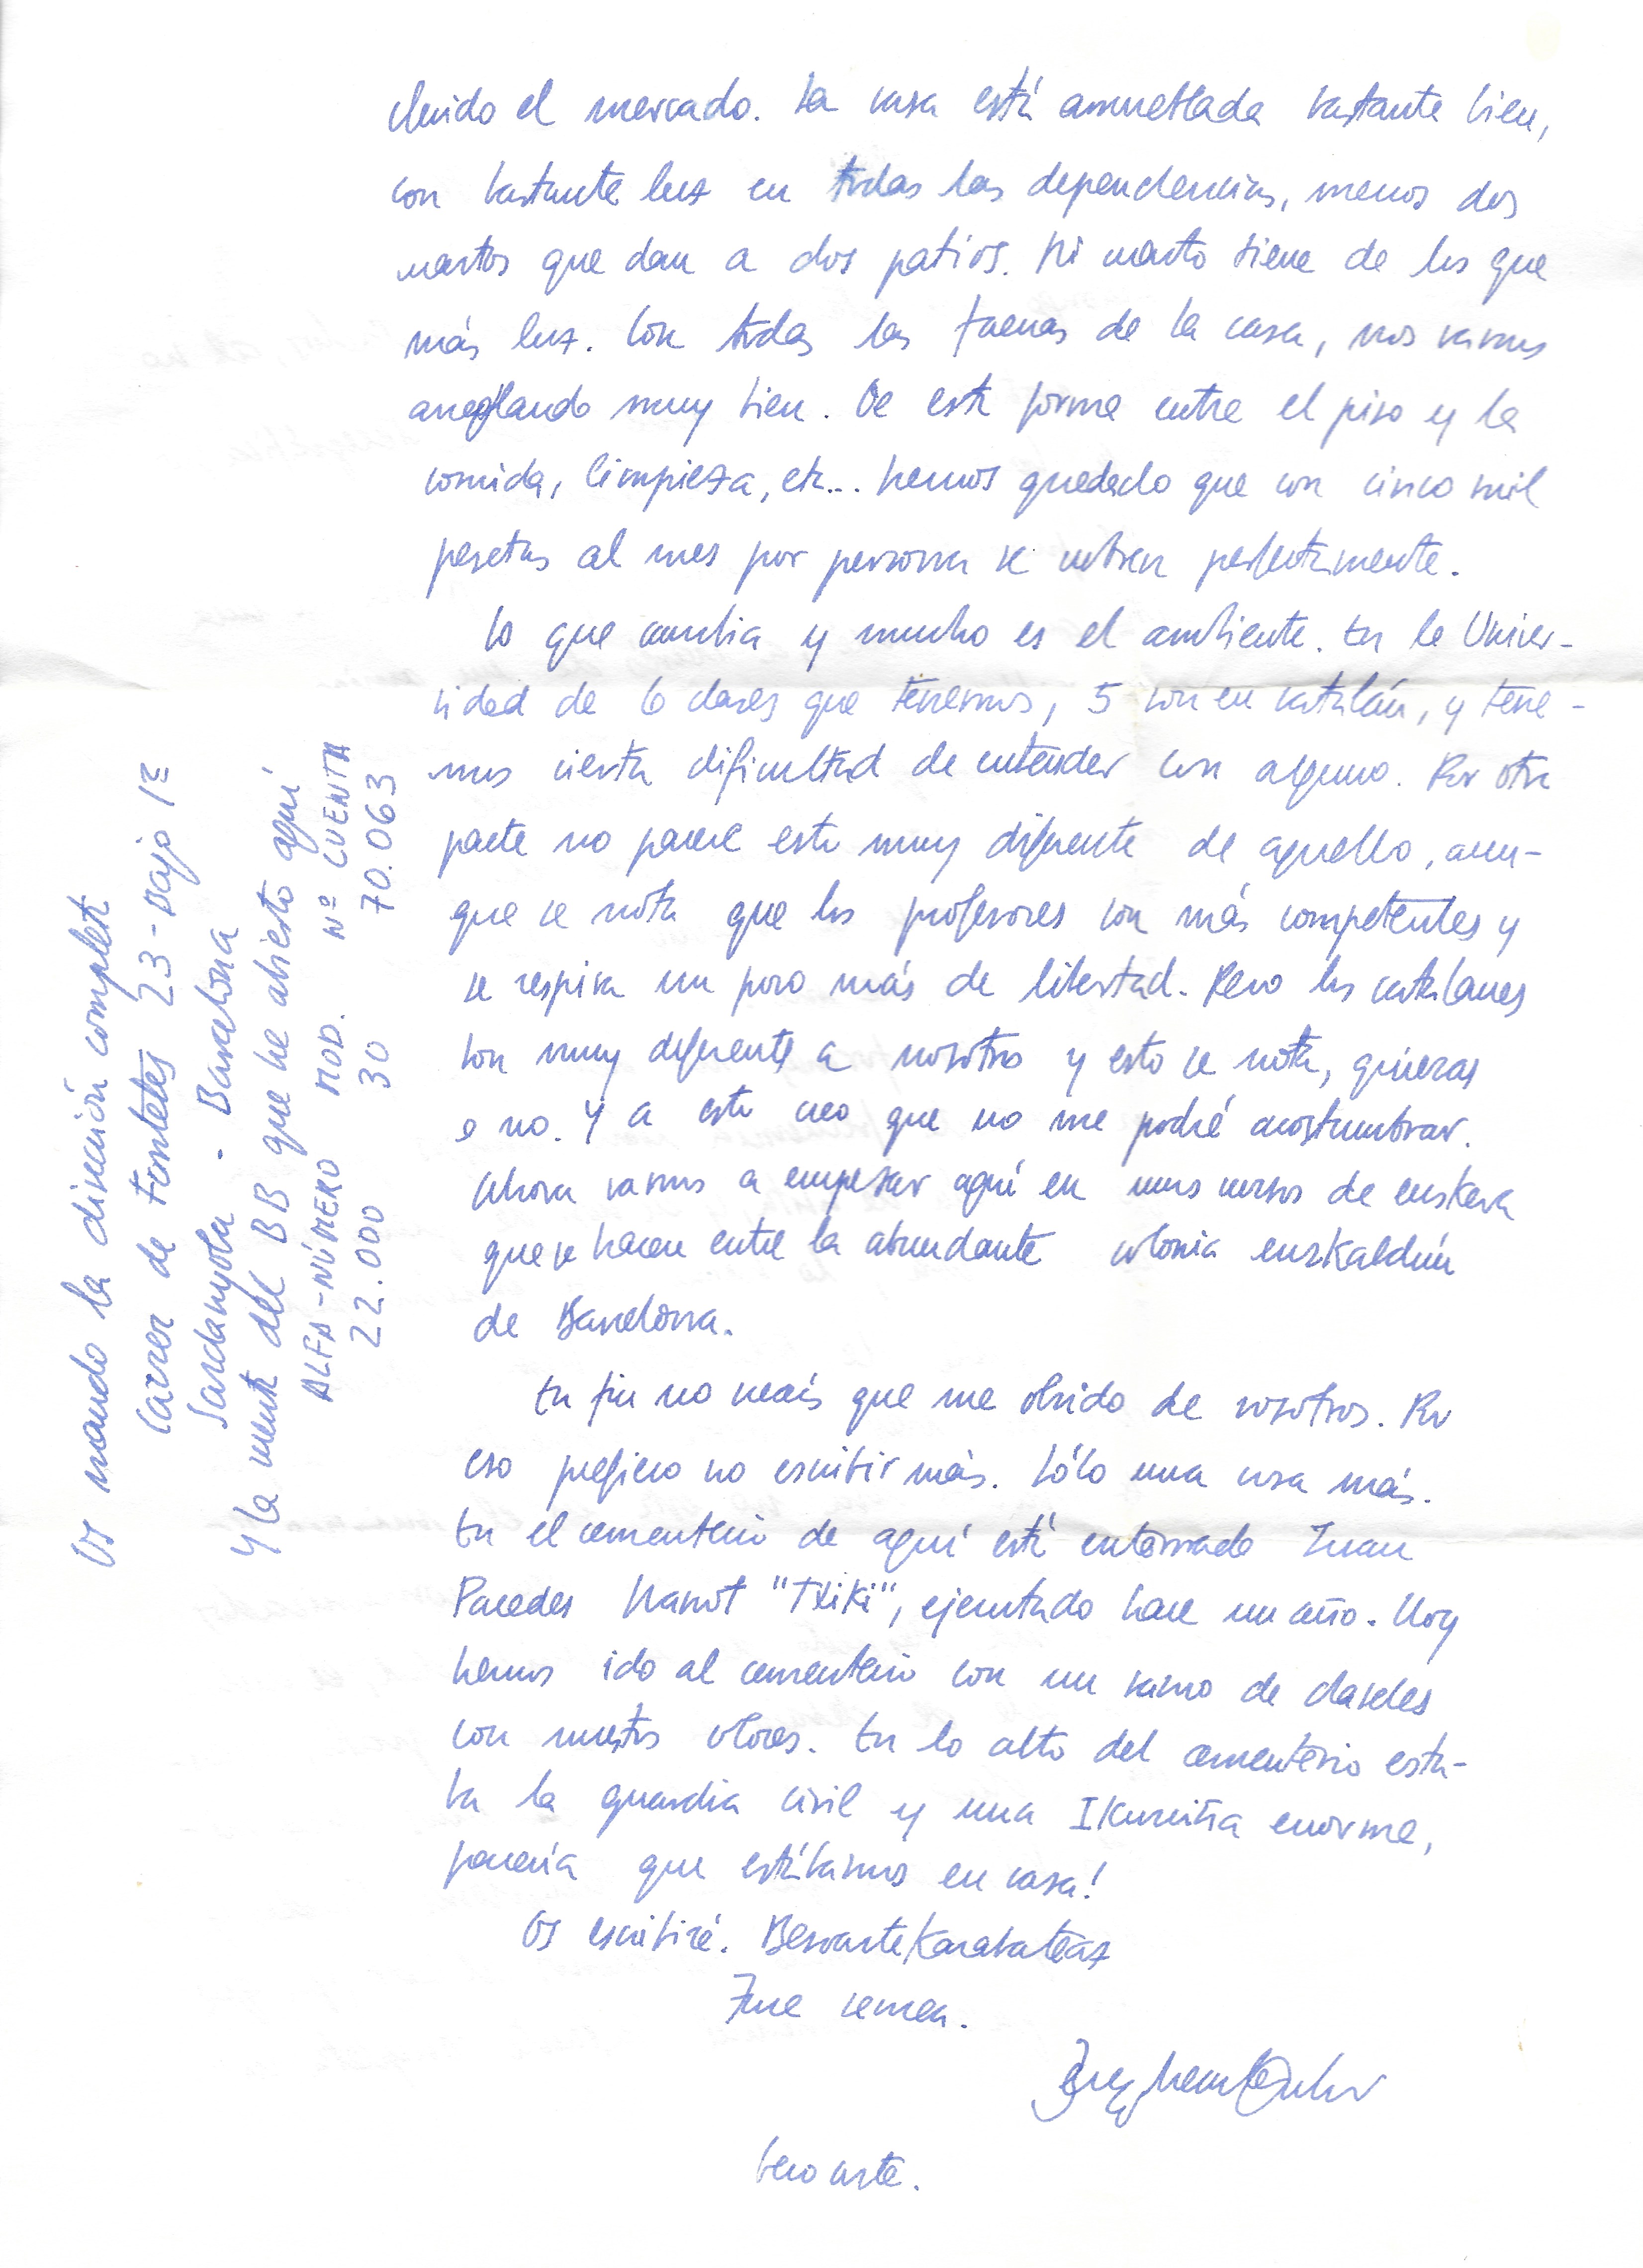 cluido el mercado. La casa está amueblada bastante bien,
con bastante luz en todas las dependencias, menos dos
cuartos que dan a dos patios. Mi cuarto tiene de los que
más luz. Con todas las faenas de la casa, nos vamos
arreglando muy bien. De esta forma entre el piso y la
comida, limpieza, etc... hemos quedado que con cinco mil
pesetas al mes por persona se cubren perfectamente.
Lo que cambia y mucho es el ambiente. En la Univer-
sidad de 6 clases que tenemos, 5 son en catalán, y tene-
mos cierta dificultad de entender con alguno. Por otra
parte no parece esto muy diferente de aquello, aun-
que se nota que los profesores son más competentes y
se respira un poco más de libertad. Pero los catalanes
son muy diferentes a nosotros y esto se nota, quieras
o no. Y a esto creo que no me podré acostumbrar.
Ahora vamos a empezar aquí en unos cursos de euskera
que se hacen entre la abundante colonia euskaldún
de Barcelona.
En fin no creáis que me olvido de vosotros. Por
eso prefiero no escribir más. Sólo una cosa más.
En el cementerio de aquí está enterrado Juan
Paredes Manot "Txiki", ejecutado hace un año. Hoy
hemos ido al cementerio con un ramo de claveles
con nuestros colores. En lo alto del cementerio esta-
ba la guardia civil y una Ikurriña enorme,
parecía que estábamos en casa!
Os escribiré. Besarkakabatenaz
Zure semea.
Gero arte.
Os mando la dirección completa
Carrer de Fontetes 23-Bajo 1ª
Sardanyola - Barcelona
Y la cuenta del BB que he abierto aquí
ALFA-NÚMERO MOD. Nº CUENTA
22.000 30 70.063